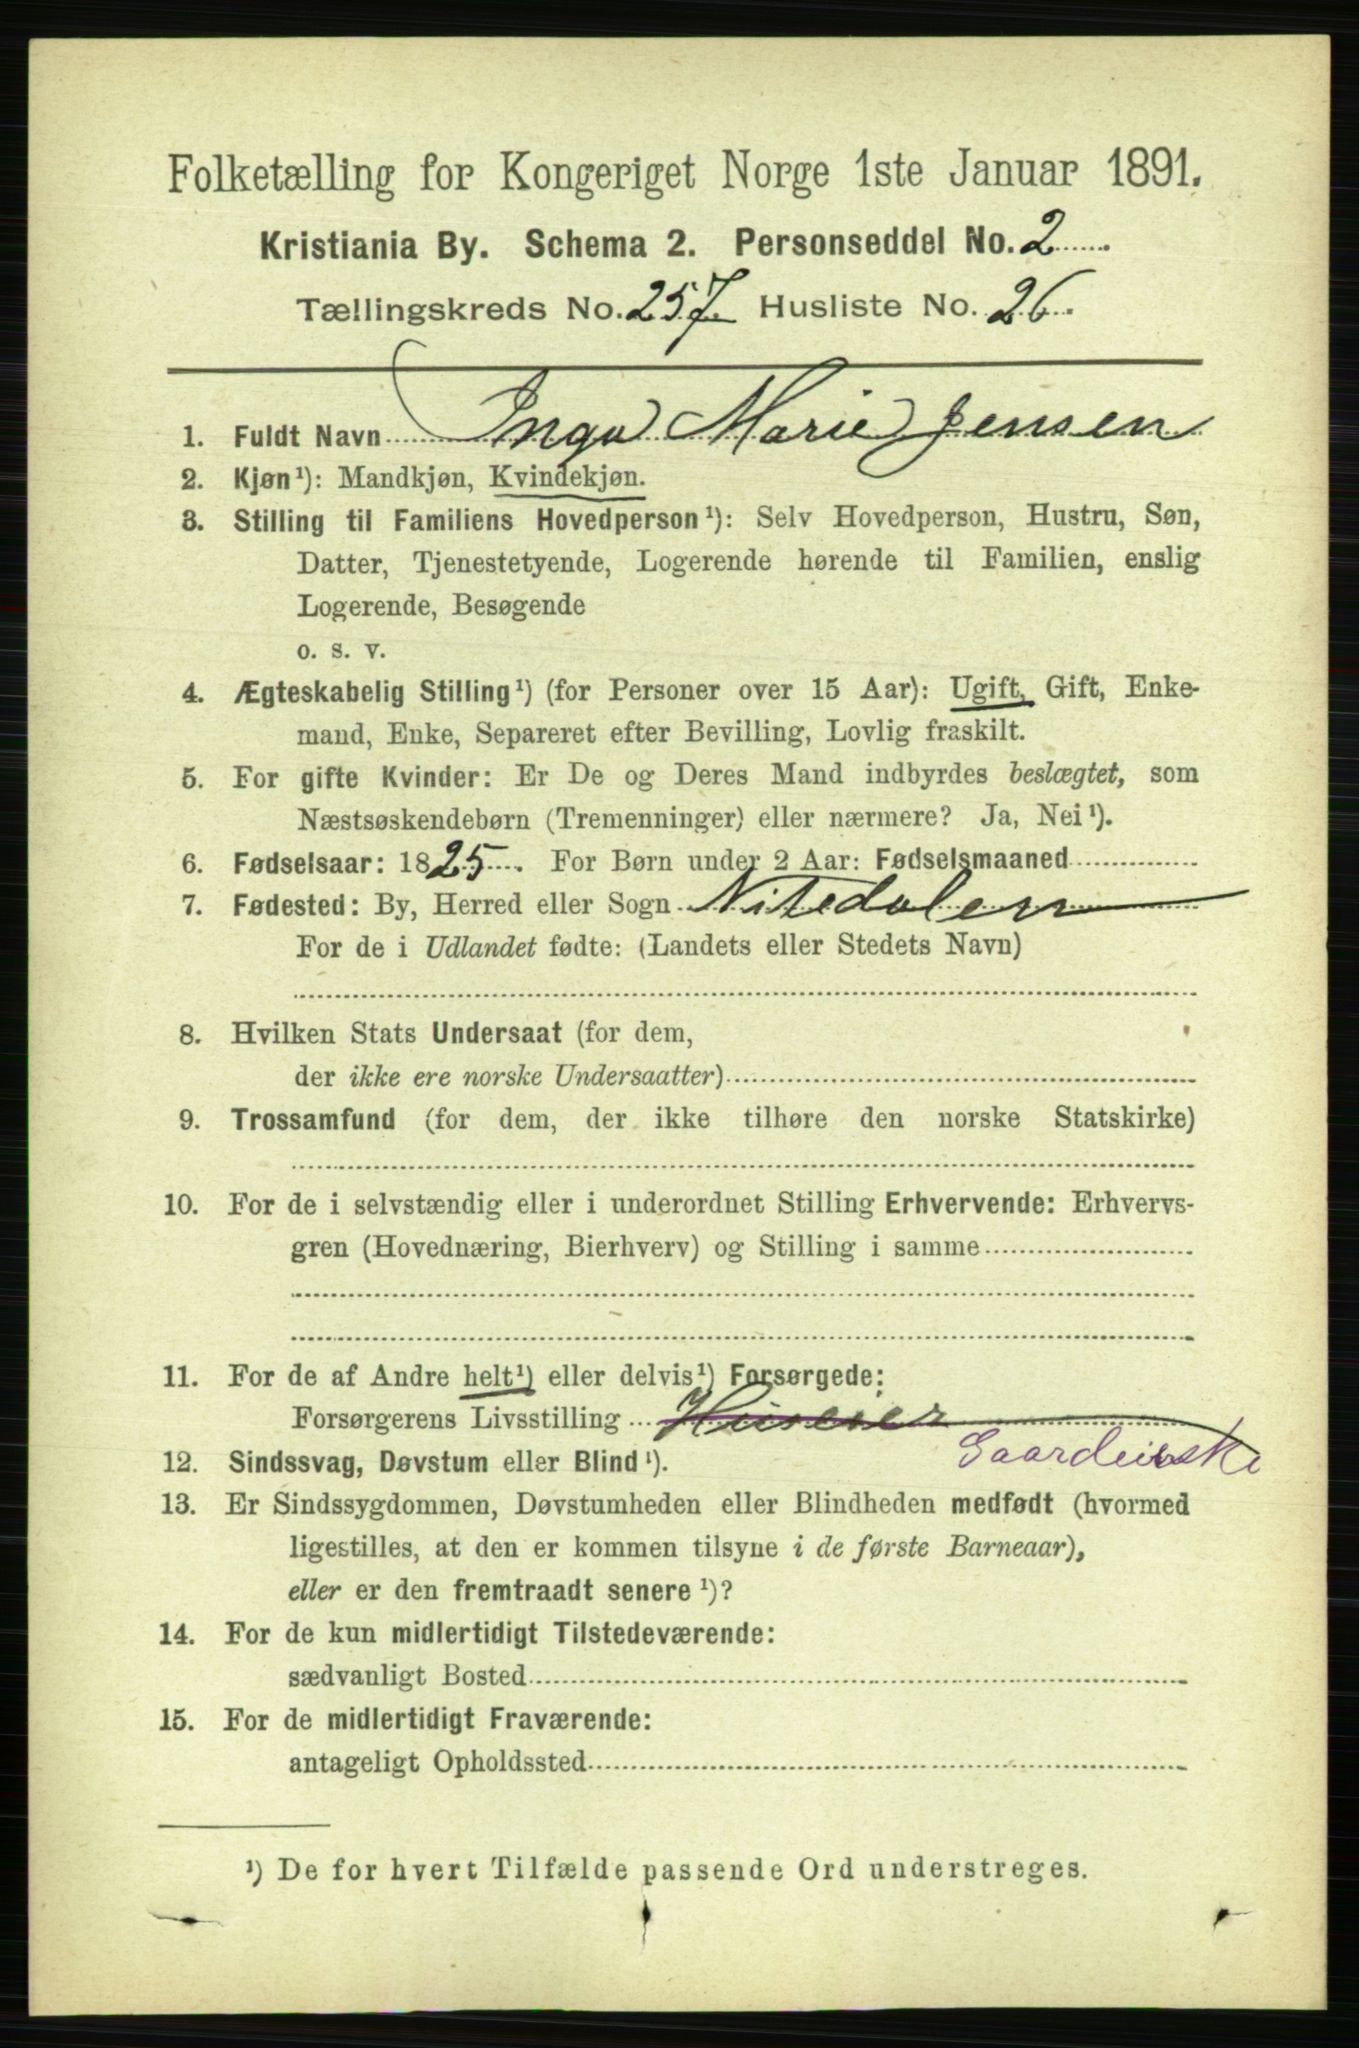 Folketælling for Kongeriget Norge 1ste Januar 1891.
Kristiania By. Schema 2. Personseddel No. 2
Tællingskreds No. 257 Husliste No. 26.
1. Fuldt Navn Inga Marie Jensen
2. Kjøn¹): Mandkjøn, Kvindekjøn.
3. Stilling til Familiens Hovedperson¹): Selv Hovedperson, Hustru, Søn,
Datter, Tjenestetyende, Logerende hørende til Familien, enslig
Logerende, Besøgende
o. s. v.
4. Ægteskabelig Stilling¹) (for Personer over 15 Aar): Ugift, Gift, Enke-
mand, Enke, Separeret efter Bevilling, Lovlig fraskilt.
5. For gifte Kvinder: Er De og Deres Mand indbyrdes beslægtet, som
Næstsøskendebørn (Tremenninger) eller nærmere? Ja, Nei¹).
6. Fødselsaar: 1825. For Børn under 2 Aar: Fødselsmaaned
7. Fødested: By, Herred eller Sogn Nitedalen
For de i Udlandet fødte: (Landets eller Stedets Navn)
8. Hvilken Stats Undersaat (for dem,
der ikke ere norske Undersaatter)
9. Trossamfund (for dem, der ikke tilhøre den norske Statskirke)
10. For de i selvstændig eller i underordnet Stilling Erhvervende: Erhvervs-
gren (Hovednæring, Bierhverv) og Stilling i samme
11. For de af Andre helt¹) eller delvis¹) Forsørgede:
Forsørgerens Livsstilling Huseier
Gaardeierske
12. Sindssvag, Døvstum eller Blind¹).
13. Er Sindssygdommen, Døvstumheden eller Blindheden medfødt (hvormed
ligestilles, at den er kommen tilsyne i de første Barneaar),
eller er den fremtraadt senere¹)?
14. For de kun midlertidigt Tilstedeværende:
sædvanligt Bosted
15. For de midlertidigt Fraværende:
antageligt Opholdssted
¹) De for hvert Tilfælde passende Ord understreges.